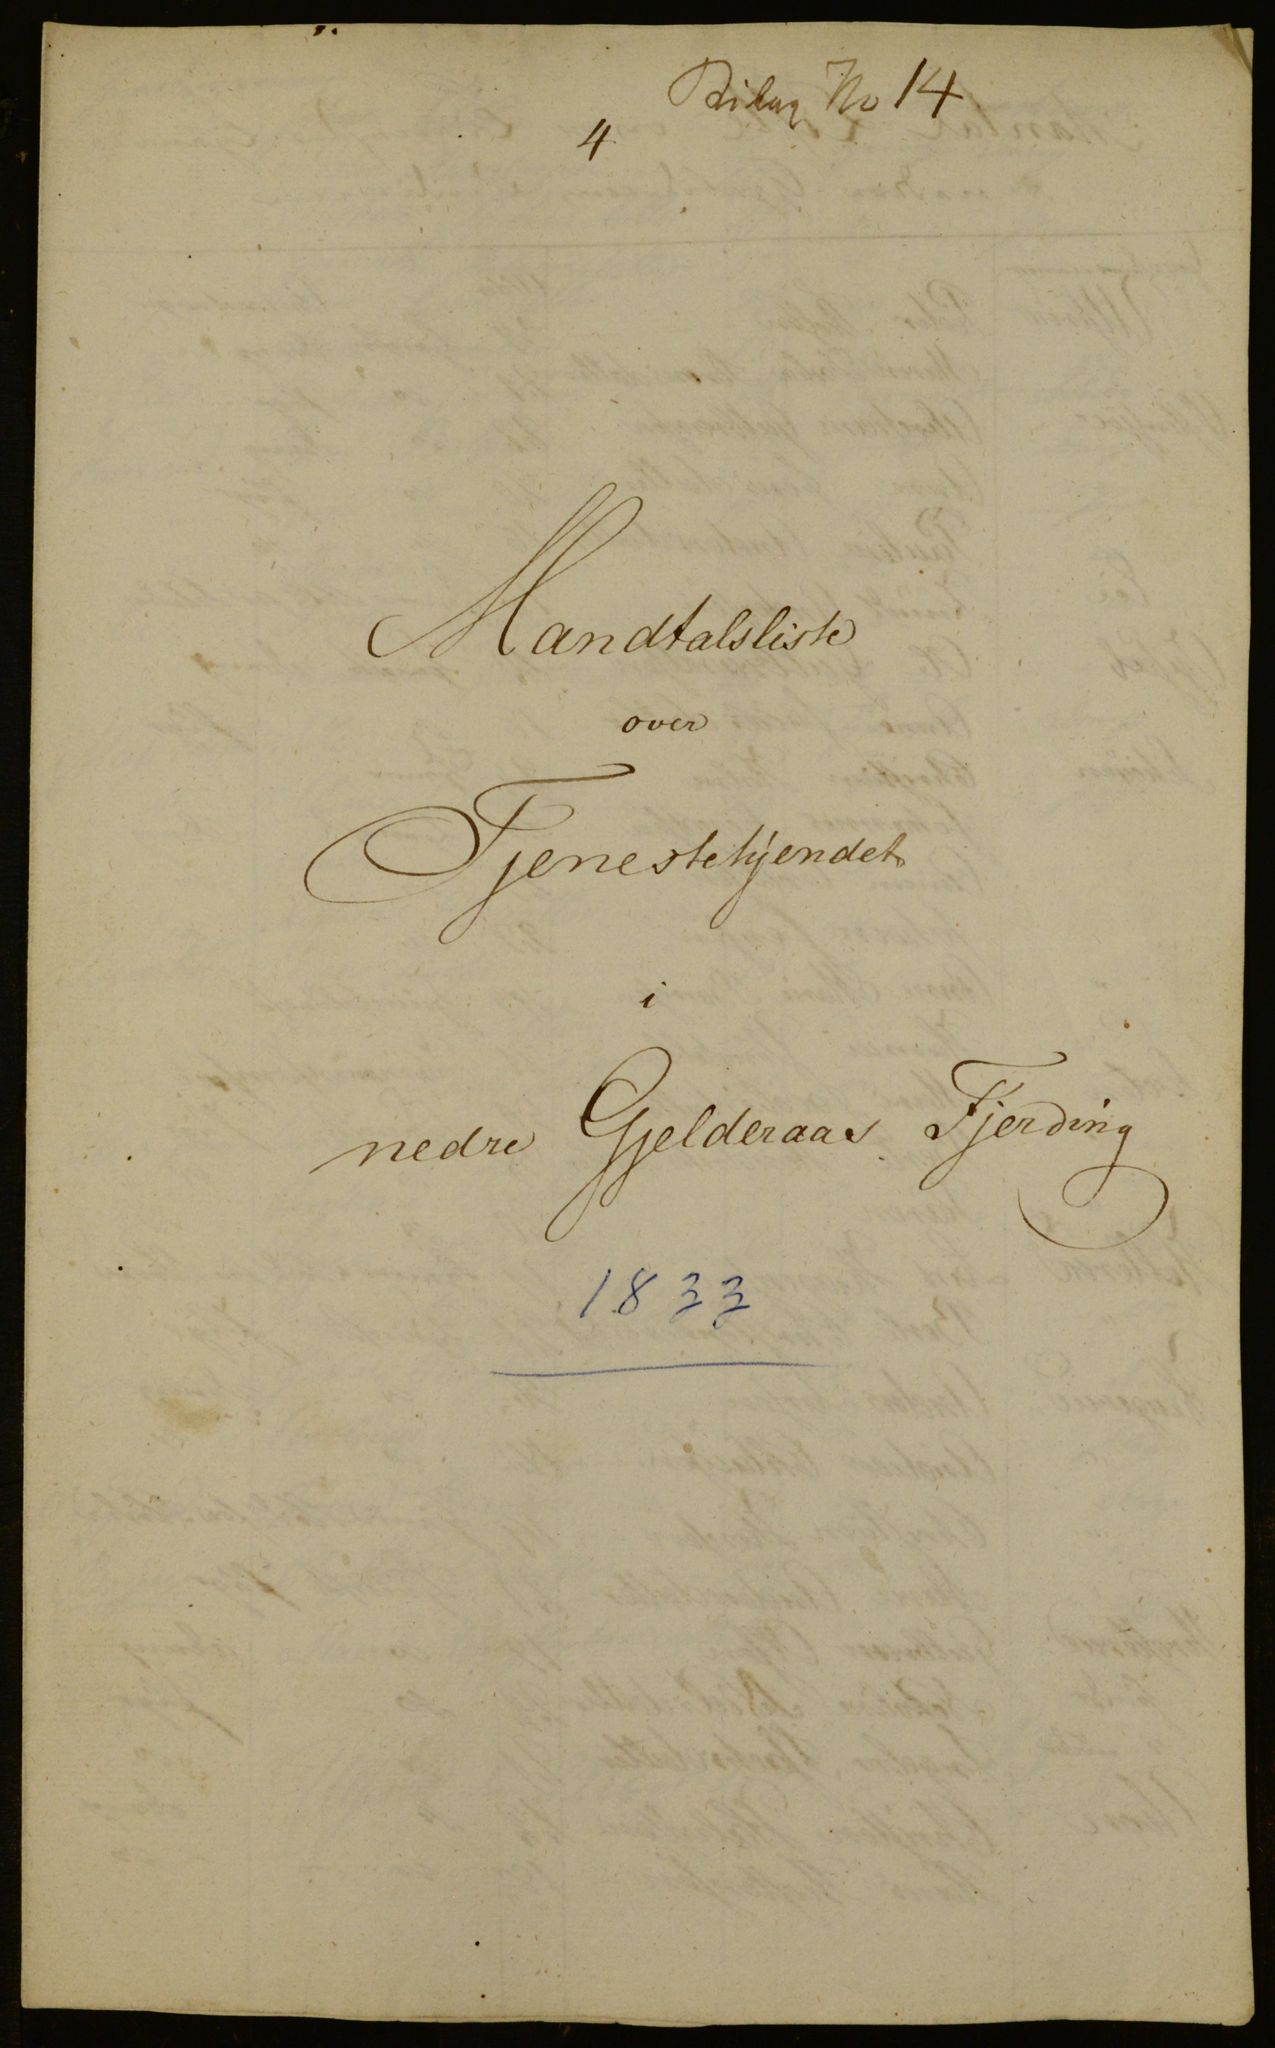 Bilag No 14
4
Mandtalsliste
over
Tjenestetyendet
i
nedre Gjelderaas Fjerding
1833